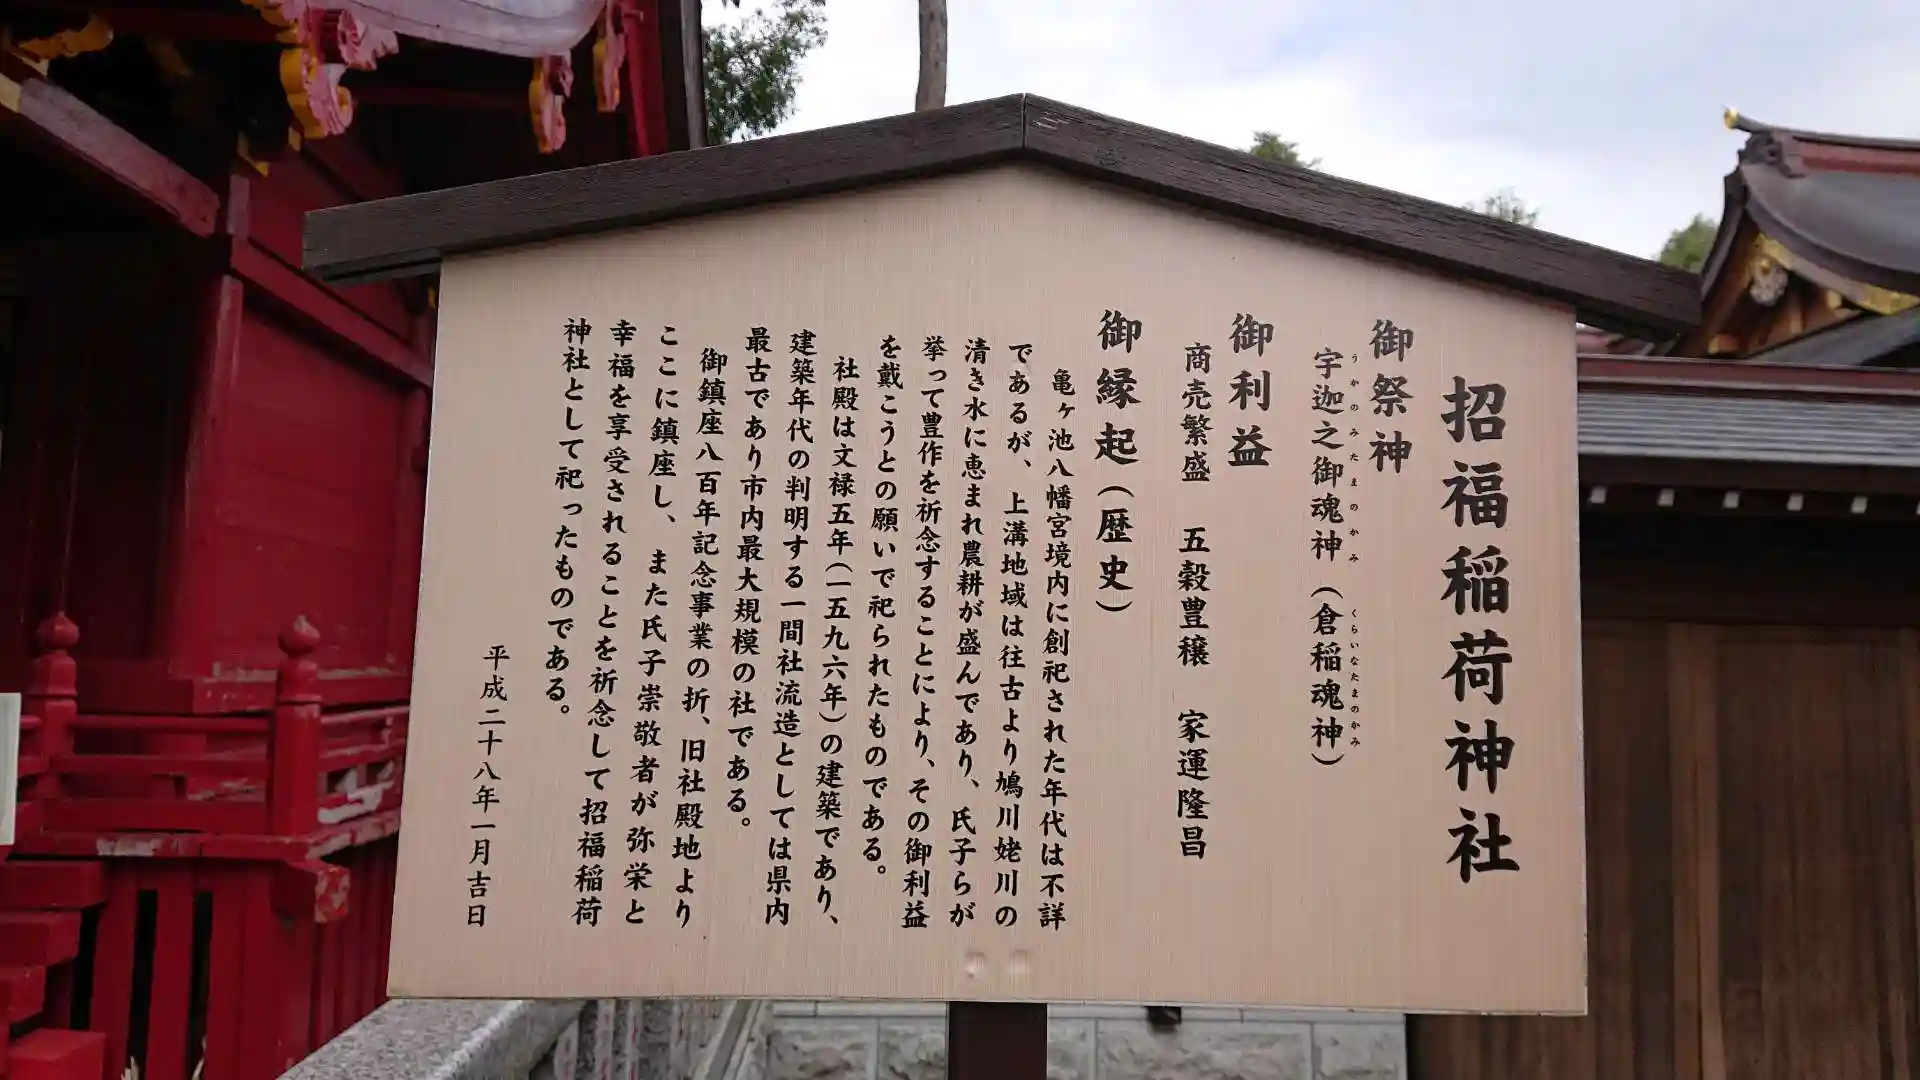 招福稲荷神社
御祭神
宇迦之御魂神(倉稲魂神)
うかのみたまのかみ
くらいなたまのかみ
御利益
商売繁盛 五穀豊穣 家運隆昌
御縁起(歴史)
亀ヶ池八幡宮境内に創祀された年代は不詳
であるが、上溝地域は往古より鳩川姥川の
清き水に恵まれ農耕が盛んであり、氏子らが
挙って豊作を祈念することにより、その御利益
を戴こうとの願いで祀られたものである。
社殿は文禄五年(一五九六年)の建築であり、
建築年代の判明する一間社流造としては県内
最古であり市内最大規模の社である。
御鎮座八百年記念事業の折、旧社殿地より
ここに鎮座し、また氏子崇敬者が弥栄と
幸福を享受されることを祈念して招福稲荷
神社として祀ったものである。
平成二十八年一月吉日